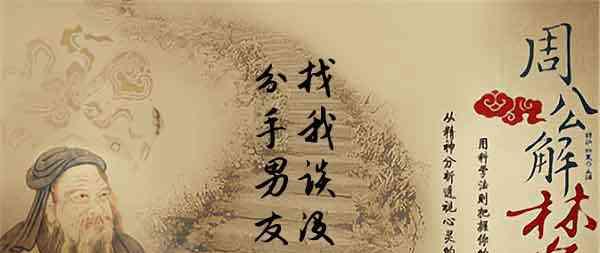 周公解
用科学法则把握你的
从精神分析透视心灵的
找我谈没
分手男友